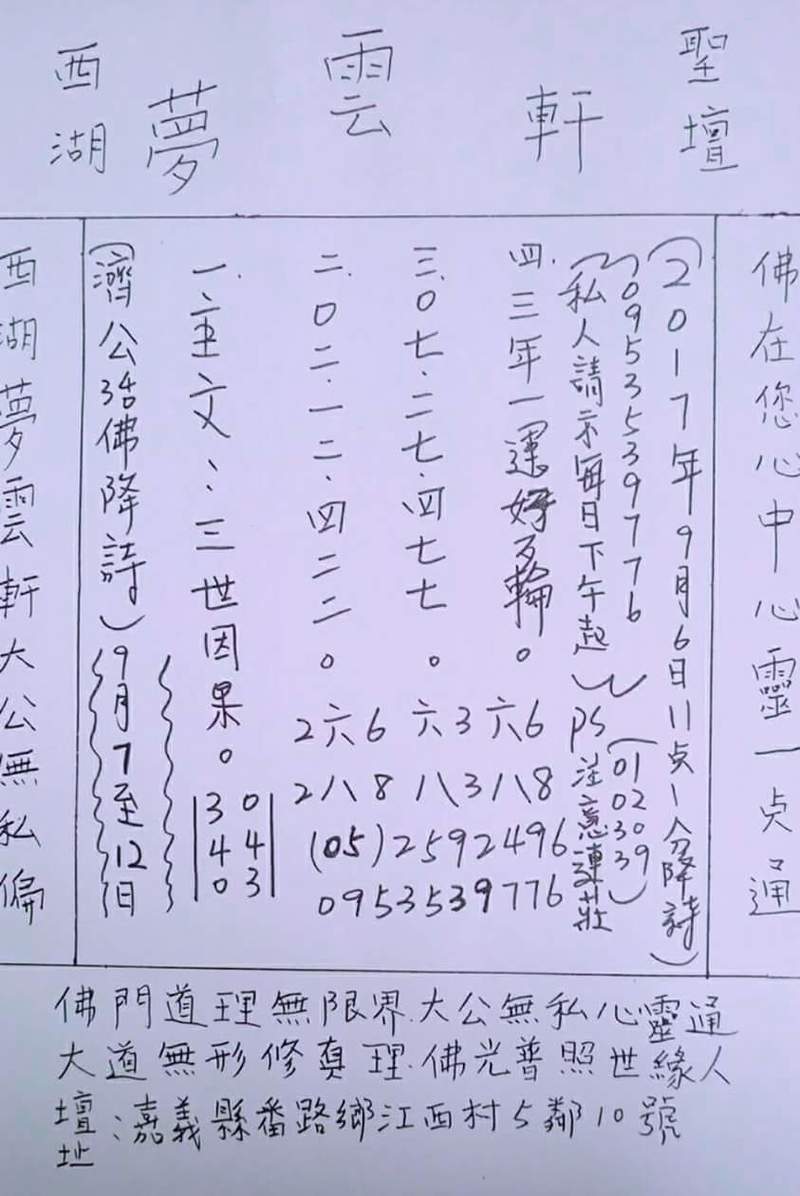 聖壇
軒
雲
夢
西湖
佛在您心中心靈一点通
(2017年9月6日11点1分降詩)
(0953539776)
(私人請示每日下午起)
PS注意連莊
(01 02 30 39)
四.三年一運好互輪。
三.0七.二七.四七七。
二.0二.一二.四二二。
2六6 六3六6
2八8 八3八8
(05)2592496
0953539776
一.主文:三世因果。
30
44
03
(濟公活佛降詩)9月7至12日
西湖夢雲軒大公無私偏
佛門道理無限界.大公無私心靈通
大道無形修真理.佛光普照世緣人
壇址:嘉義縣番路鄉江西村5鄰10號